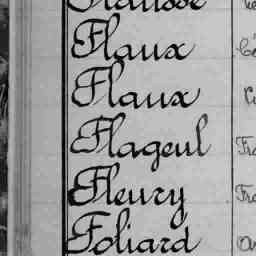 Flaux
Flaux
Flageul
Fleury
Foliard